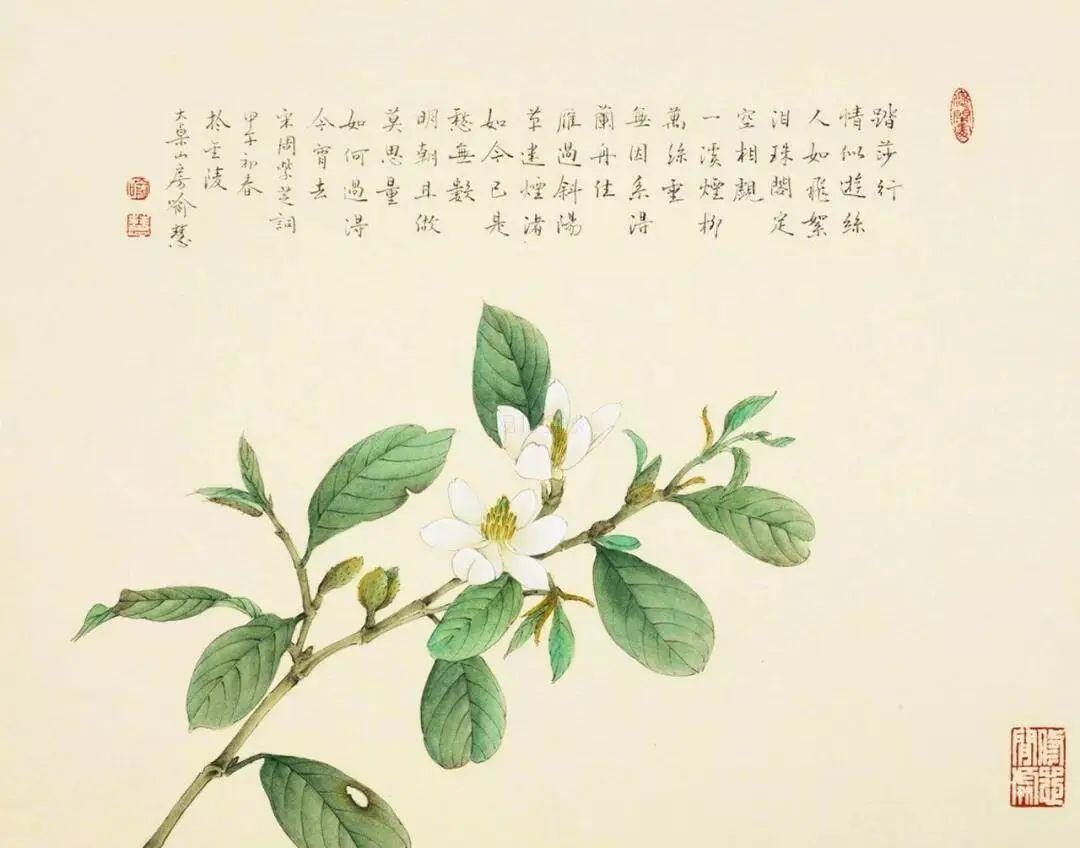 踏莎行
情似遊絲
人如飛絮
泪珠閣定
空相覷
一溪煙柳
萬絲垂
無因系得
蘭舟住
雁過斜陽
草迷煙渚
如今已是
愁無數
明朝且做
莫思量
如何過得
今宵去
宋周紫芝詞
甲午初春
於金陵
大泉山房喻慧